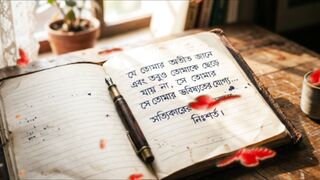 যে তোমার অতীত জানে
এবং তবুও তোমাকে ছেড়ে
যায় না, সে তোমার
সে তোমার ভবিষ্যতের যোগ্য...
সত্যিকারের
নিঃশর্ত।